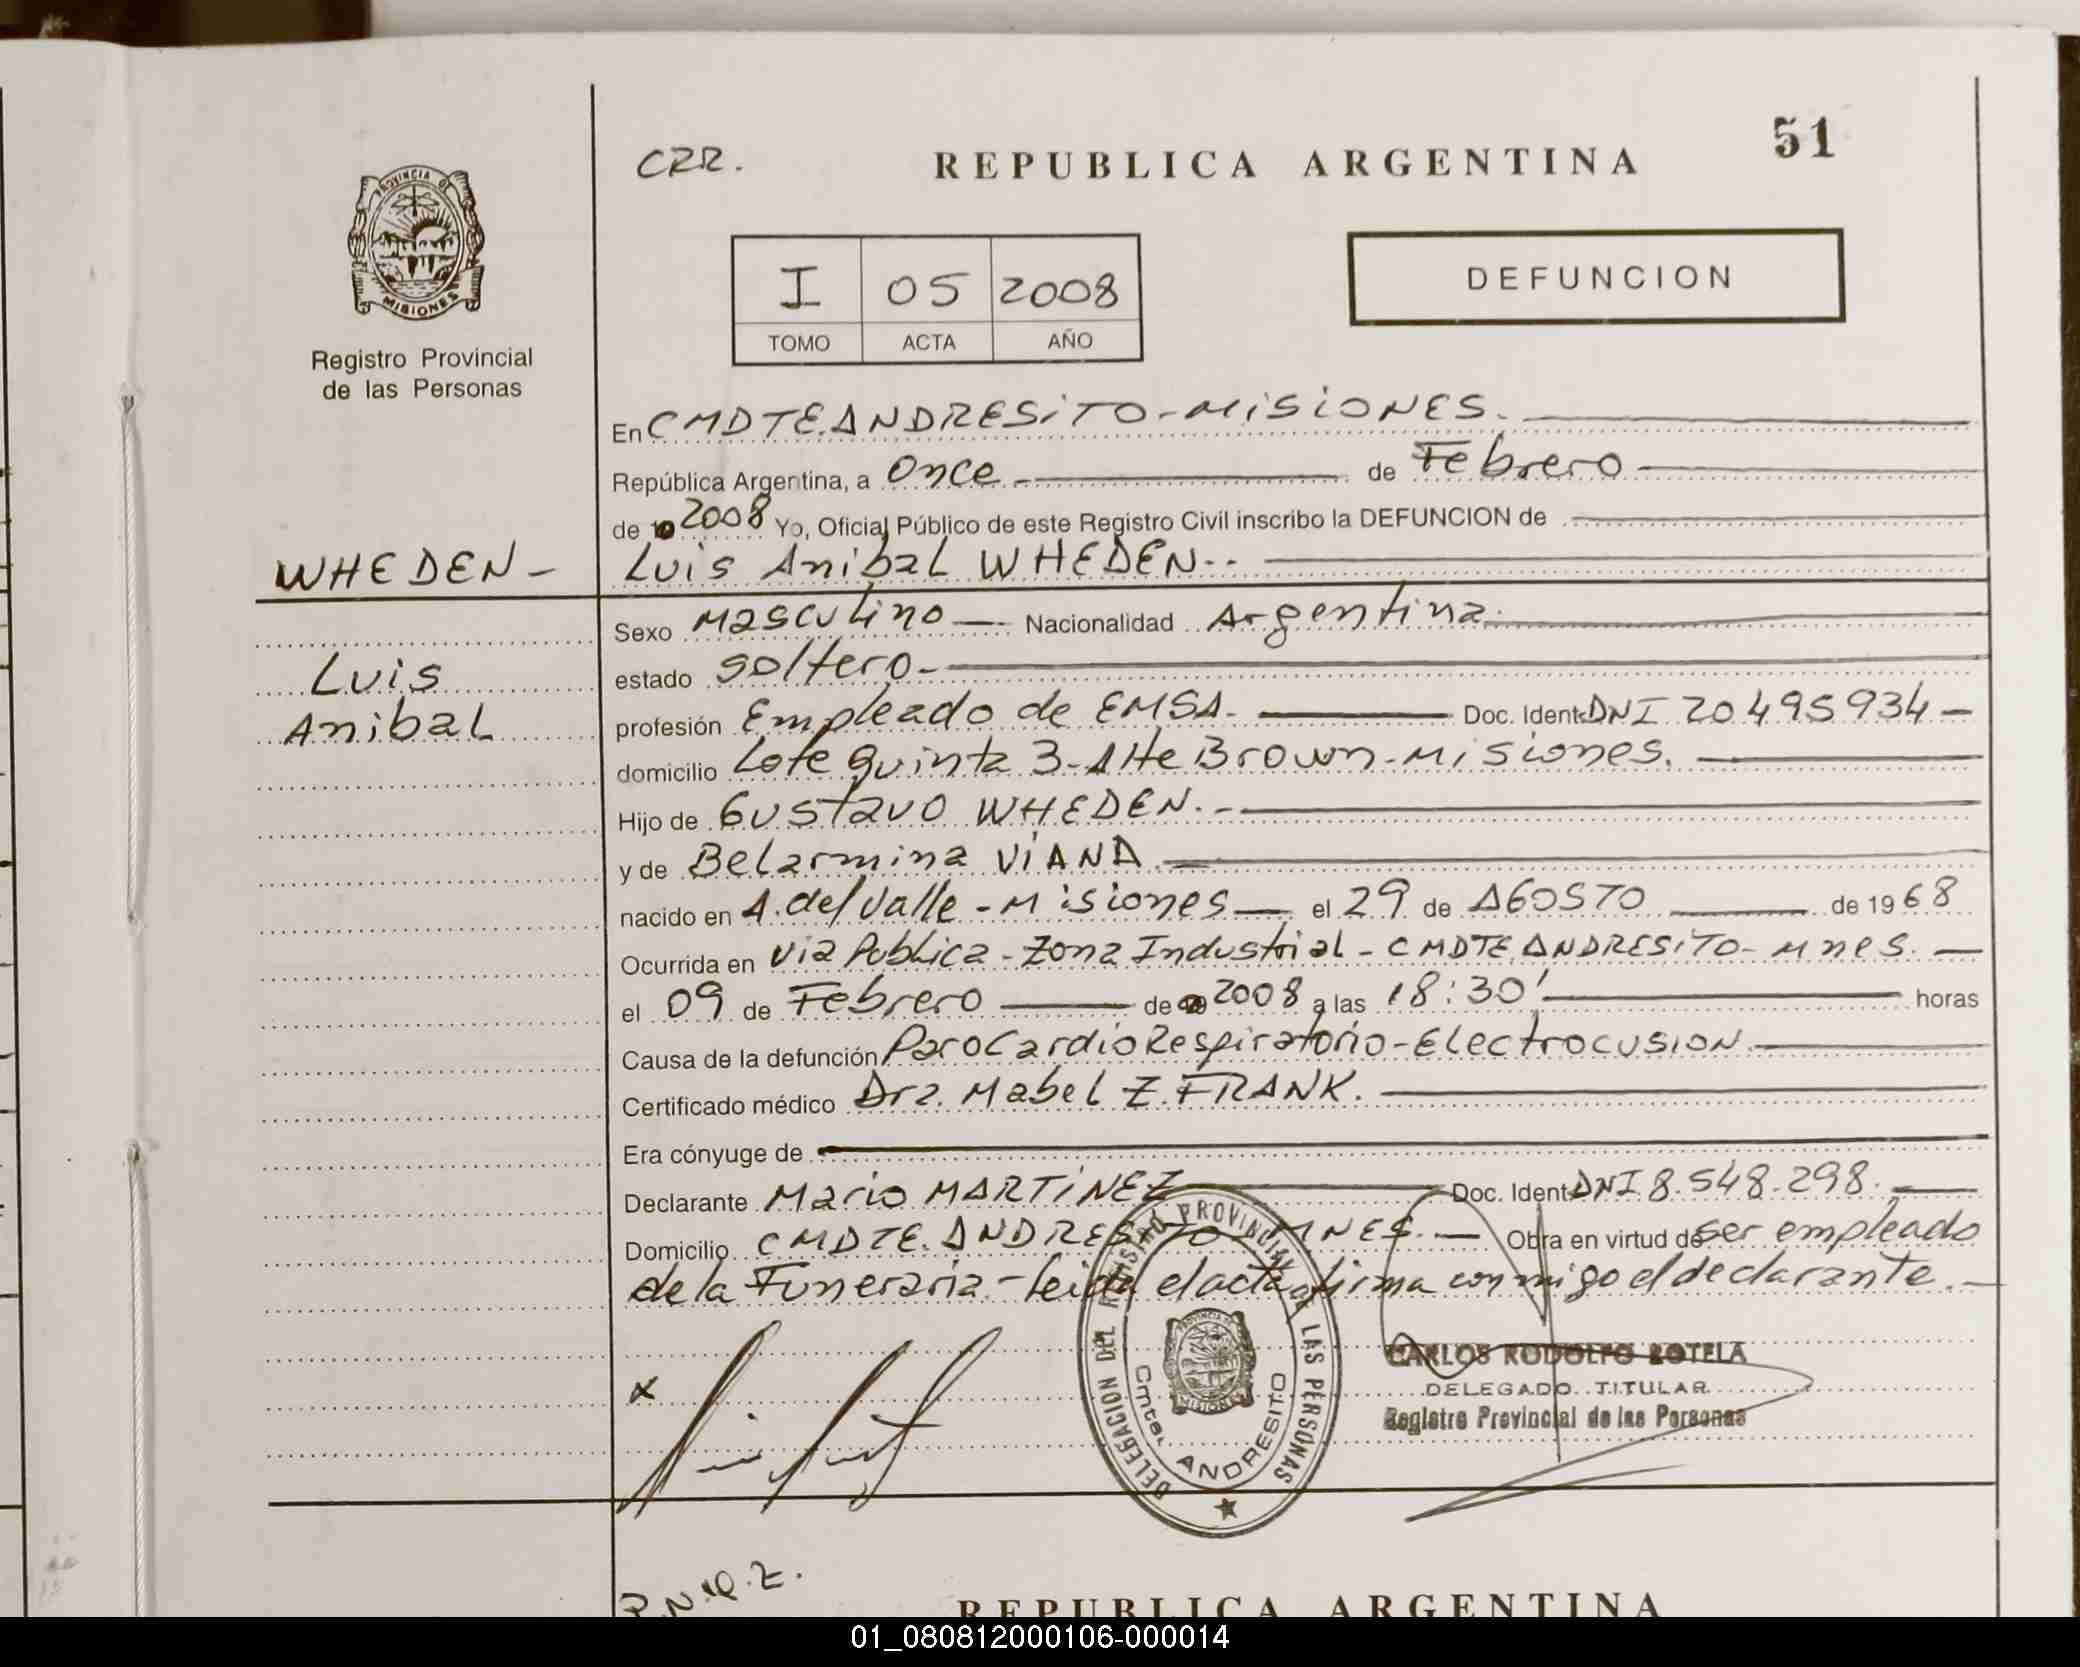 51
CRR.
REPUBLICA ARGENTINA
PROVINCIA DE
MISIONES
I 05 2008
TOMO ACTA AÑO
DEFUNCION
Registro Provincial
de las Personas
En CMDTE ANDRESiTO - MiSiONES.
República Argentina, a Once de Febrero
de 2008 Yo, Oficial Público de este Registro Civil inscribo la DEFUNCION de
WHEDEN - Luis Anibal WHEDEN. -
Sexo Masculino Nacionalidad Argentina
Luis
Anibal
estado soltero -
profesión Empleado de EMSA. Doc. Ident. DNI 20495934 -
domicilio Lote quinta 3 - Alte Brown - Misiones.
Hijo de Gustavo WHEDEN. -
y de Belarmina ViANA.
nacido en A. del Valle - Misiones el 29 de AGOSTO de 1968
Ocurrida en Via Publica - Zona Industrial - CMDTE ANDRESiTO - Mnes. -
el 09 de Febrero de 2008 a las 18:30' horas
Causa de la defunción Paro Cardio Respiratorio - Electrocusion.
Certificado médico Dra. Mabel Z. FRANK.
Era cónyuge de
Declarante Mario MARTiNEZ Doc. Ident. DNI 8.548.298.
Domicilio CMDTE. ANDRESiTO MNES. - Obra en virtud de ser empleado
de la Funeraria - leida el acta firma conmigo el declarante. -
x
DELEGACION DEL REGISTRO PROVINCIAL DE LAS PERSONAS
PROVINCIA DE
MISIONES
Cmte. ANDRESITO
CARLOS RODOLFO ROTELA
DELEGADO TITULAR
Registro Provincial de las Personas
REPUBLICA ARGENTINA
01_080812000106-000014